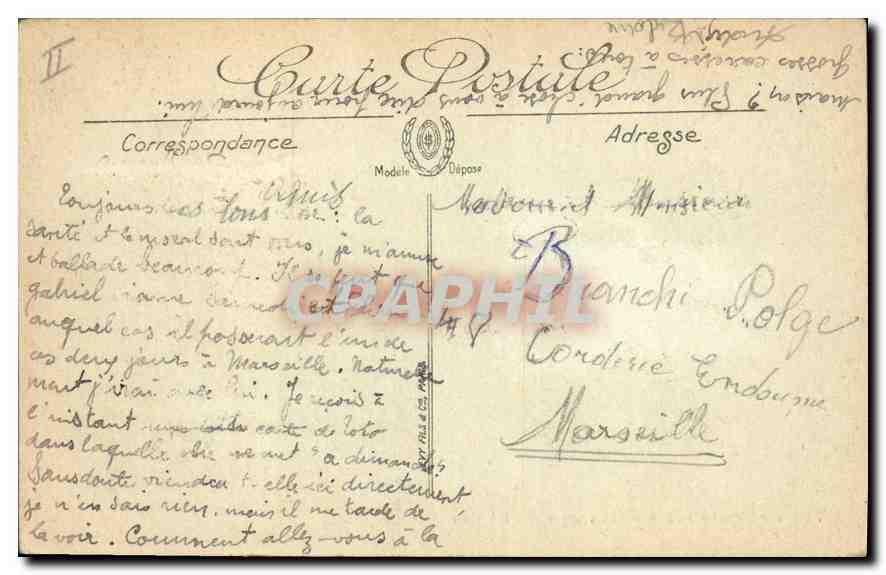 II
Carte Postale
Correspondance
Adresse
Modèle Déposé
LEVY FILS & Cie, PARIS
CPAPHIL
Toujours tous : la
santé et le moral sont bons, je m'amuse
et ballade beaucoup. Il se peut que
gabriel
auquel cas il passerait l'un de
ces deux jours à Marseille. Naturelle
ment j'irai avec lui. Je reçois à
l'instant une carte de Toto
dans laquelle elle me met "à dimanche"
Sans doute viendra t-elle ici directement,
je n'en sais rien, mais il me tarde de
la voir. Comment allez-vous à la
maison ? Plus grand' chose à vous dire pour aujourd'hui.
Grosses caresses à tous
Madame et Monsieur
Bianchi Polge
48
Corderie Endoume
Marseille